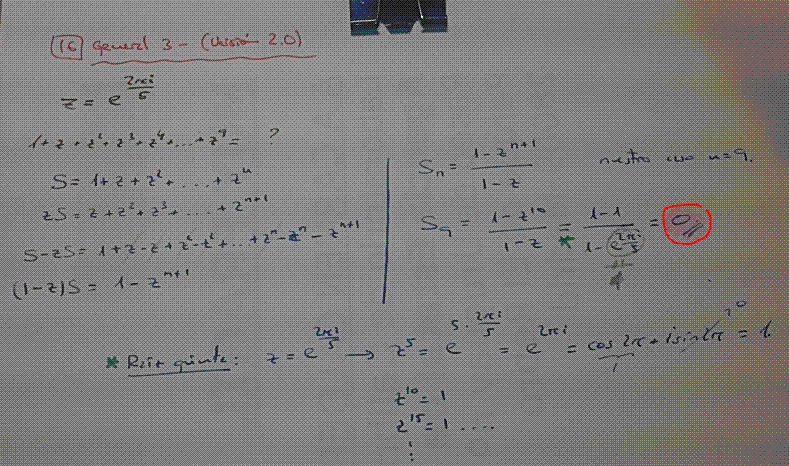 16 General 3 - (Versión 2.0)
z = e^{2πi/5}
1 + z + z² + z³ + z⁴ + ... + z⁹ = ?
S = 1 + z + z² + ... + zⁿ
zS = z + z² + z³ + ... + zⁿ⁺¹
S - zS = 1 + z - z + z² - z² + ... + zⁿ - zⁿ - zⁿ⁺¹
(1-z)S = 1 - zⁿ⁺¹
Sₙ = (1 - zⁿ⁺¹)/(1 - z) nuestro caso n = 9.
S₉ = (1 - z¹⁰)/(1 - z) =* (1 - 1)/(1 - e^{2πi/5}) = 0
≠ 1
* Raíz quinta: z = e^{2πi/5} → z⁵ = e^{5·2πi/5} = e^{2πi} = cos 2π + i sin 2π = 1.
1 0
z¹⁰ = 1
z¹⁵ = 1 ....
⋮